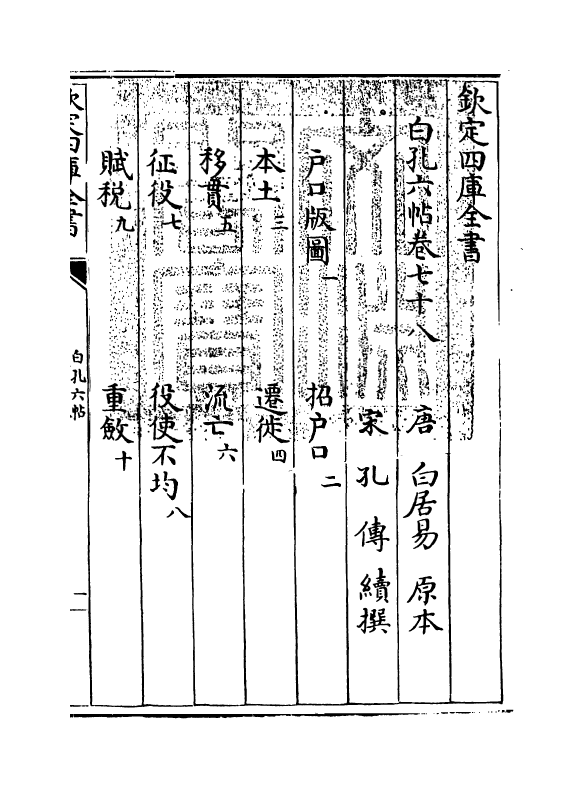 欽定四庫全書
白孔六帖卷七十八　唐　白居易　原本
宋　孔　傳　續撰
户口版圖一　招户口二
本土三　遷徙四
移貫五　流亡六
征役七　役使不均八
賦税九　重斂十
欽定四庫全書
白孔六帖
一